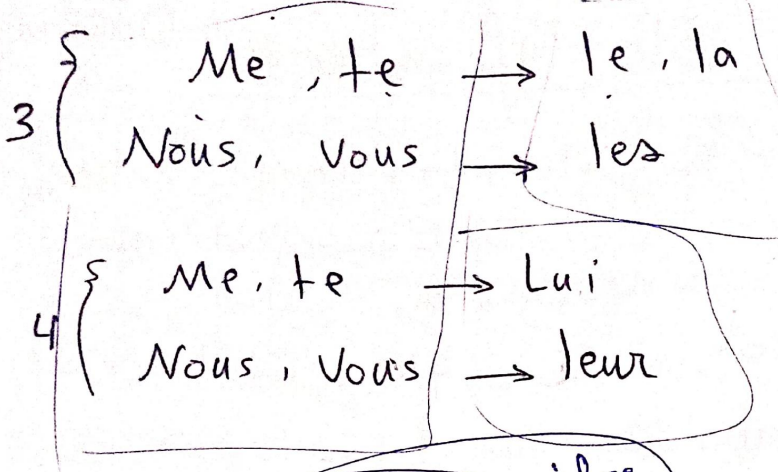 Me, te → le, la
3 Nous, Vous → les
Me, te → Lui
4 Nous, Vous → leur